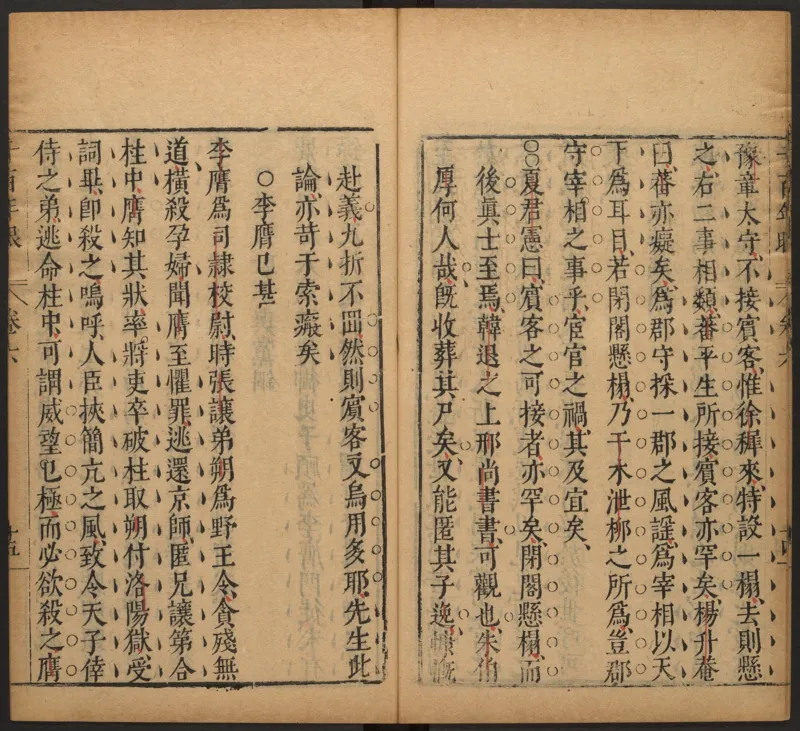 豫章太守、不接賓客、惟徐穉來、特設一榻、去則懸
之、右二事相類、蕃平生所接賓客亦罕矣、楊升菴
曰、蕃亦癡矣、爲郡守採一郡之風謡、爲宰相以天
下爲耳目、若閉閣懸榻、乃干木泄柳之所爲、豈郡
守宰相之事乎、宦官之禍、其及宜矣、
○○夏君憲曰、賓客之可接者、亦罕矣、閉閣懸榻、而
後眞士至焉、韓退之上邢尚書書、可觀也、朱伯
厚何人哉、旣收葬其尸矣、又能匿其子逸、慷慨
赴義、九折不囬、然則賓客又烏用多耶、先生此
論、亦苛于索瘢矣
○李膺已甚
李膺爲司隷校尉、時張讓弟朔爲野王令、貪殘無
道、橫殺孕婦、聞膺至、懼罪、逃還京師、匿兄讓第合
柱中、膺知其狀、率將吏卒破柱取朔、付洛陽獄、受
詞畢、卽殺之、嗚呼、人臣挾簡亢之風、致令天子倖
侍之弟、逃命柱中、可謂威望已極、而必欲殺之、膺
千百年眼
卷六
十四
千百年眼
卷六
十五